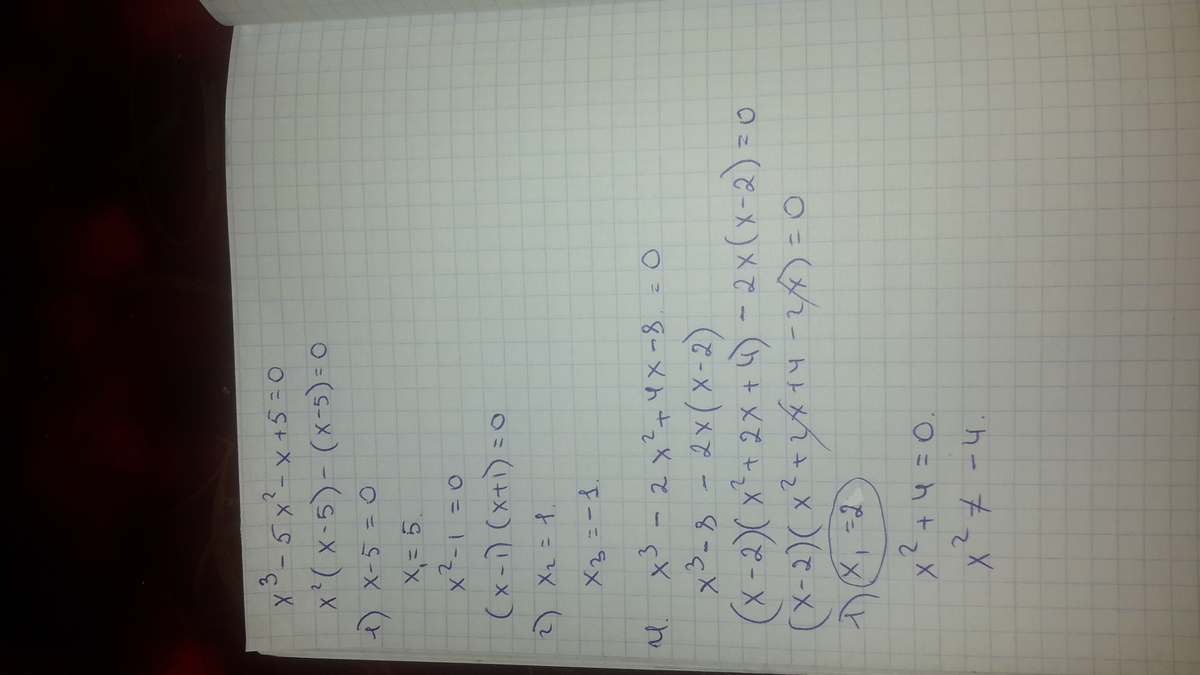 x³ - 5x² - x + 5 = 0
x²(x-5) - (x-5) = 0
1) x - 5 = 0
x₁ = 5.
x² - 1 = 0
(x-1)(x+1) = 0
2) x₂ = 1.
x₃ = -1.
4. x³ - 2x² + 4x - 8. = 0
x³ - 8 - 2x(x-2)
(x-2)(x² + 2x + 4) - 2x(x-2) = 0
(x-2)(x² + 2x + 4 - 2x) = 0
1) x₁ = 2
x² + 4 = 0.
x² ≠ -4.